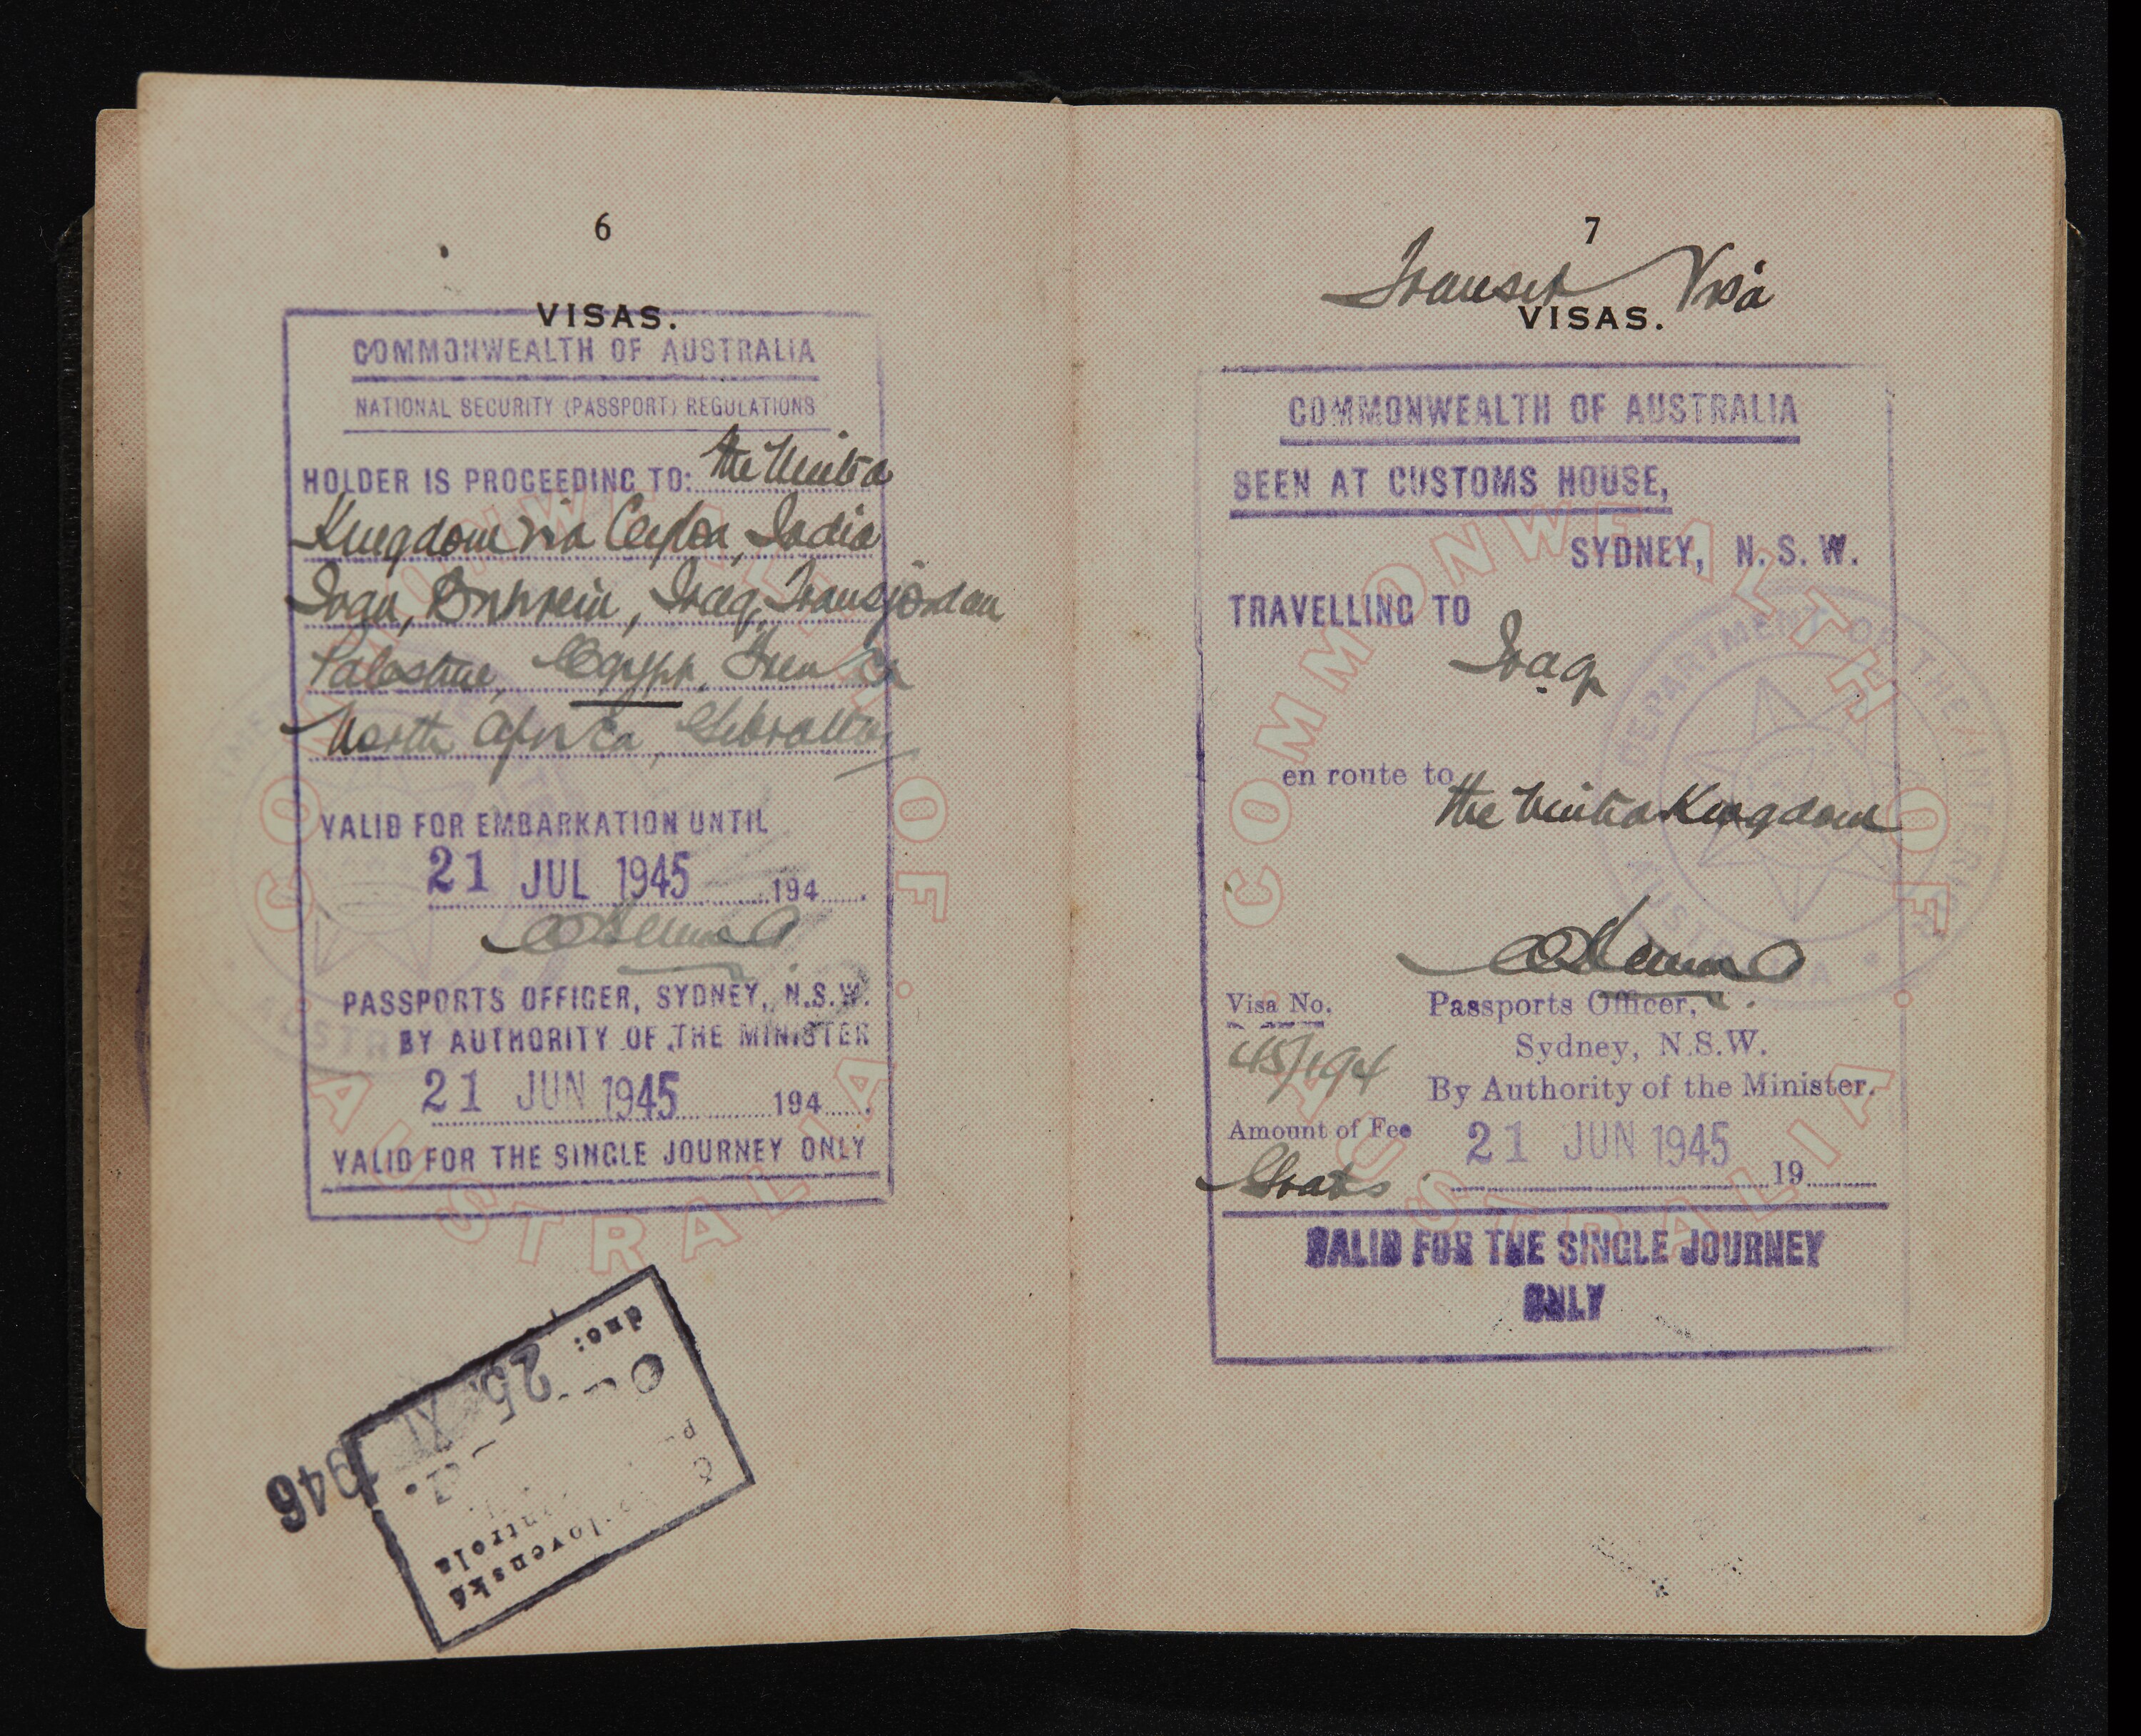 6
VISAS.
COMMONWEALTH OF AUSTRALIA
NATIONAL SECURITY (PASSPORT) REGULATIONS
HOLDER IS PROCEEDING TO: the United
Kingdom via Ceylon, India
Iran, Bahrein, Iraq, Transjordan
Palestine, Egypt, French
North Africa, Gibraltar
VALID FOR EMBARKATION UNTIL
21 JUL 1945 194
PASSPORTS OFFICER, SYDNEY, N.S.W.
BY AUTHORITY OF THE MINISTER
21 JUN 1945 194
VALID FOR THE SINGLE JOURNEY ONLY
COMMONWEALTH OF
AUSTRALIA
dne:
25 XI 1946
7
Transit Visa
VISAS.
COMMONWEALTH OF AUSTRALIA
SEEN AT CUSTOMS HOUSE,
SYDNEY, N. S. W.
TRAVELLING TO
Iraq
en route to
the United Kingdom
Visa No. Passports Officer,
45/194 Sydney, N.S.W.
By Authority of the Minister.
Amount of Fee 21 JUN 1945
Gratis 19
VALID FOR THE SINGLE JOURNEY
ONLY
COMMONWEALTH OF
AUSTRALIA
DEPARTMENT OF THE INTERIOR
AUSTRALIA